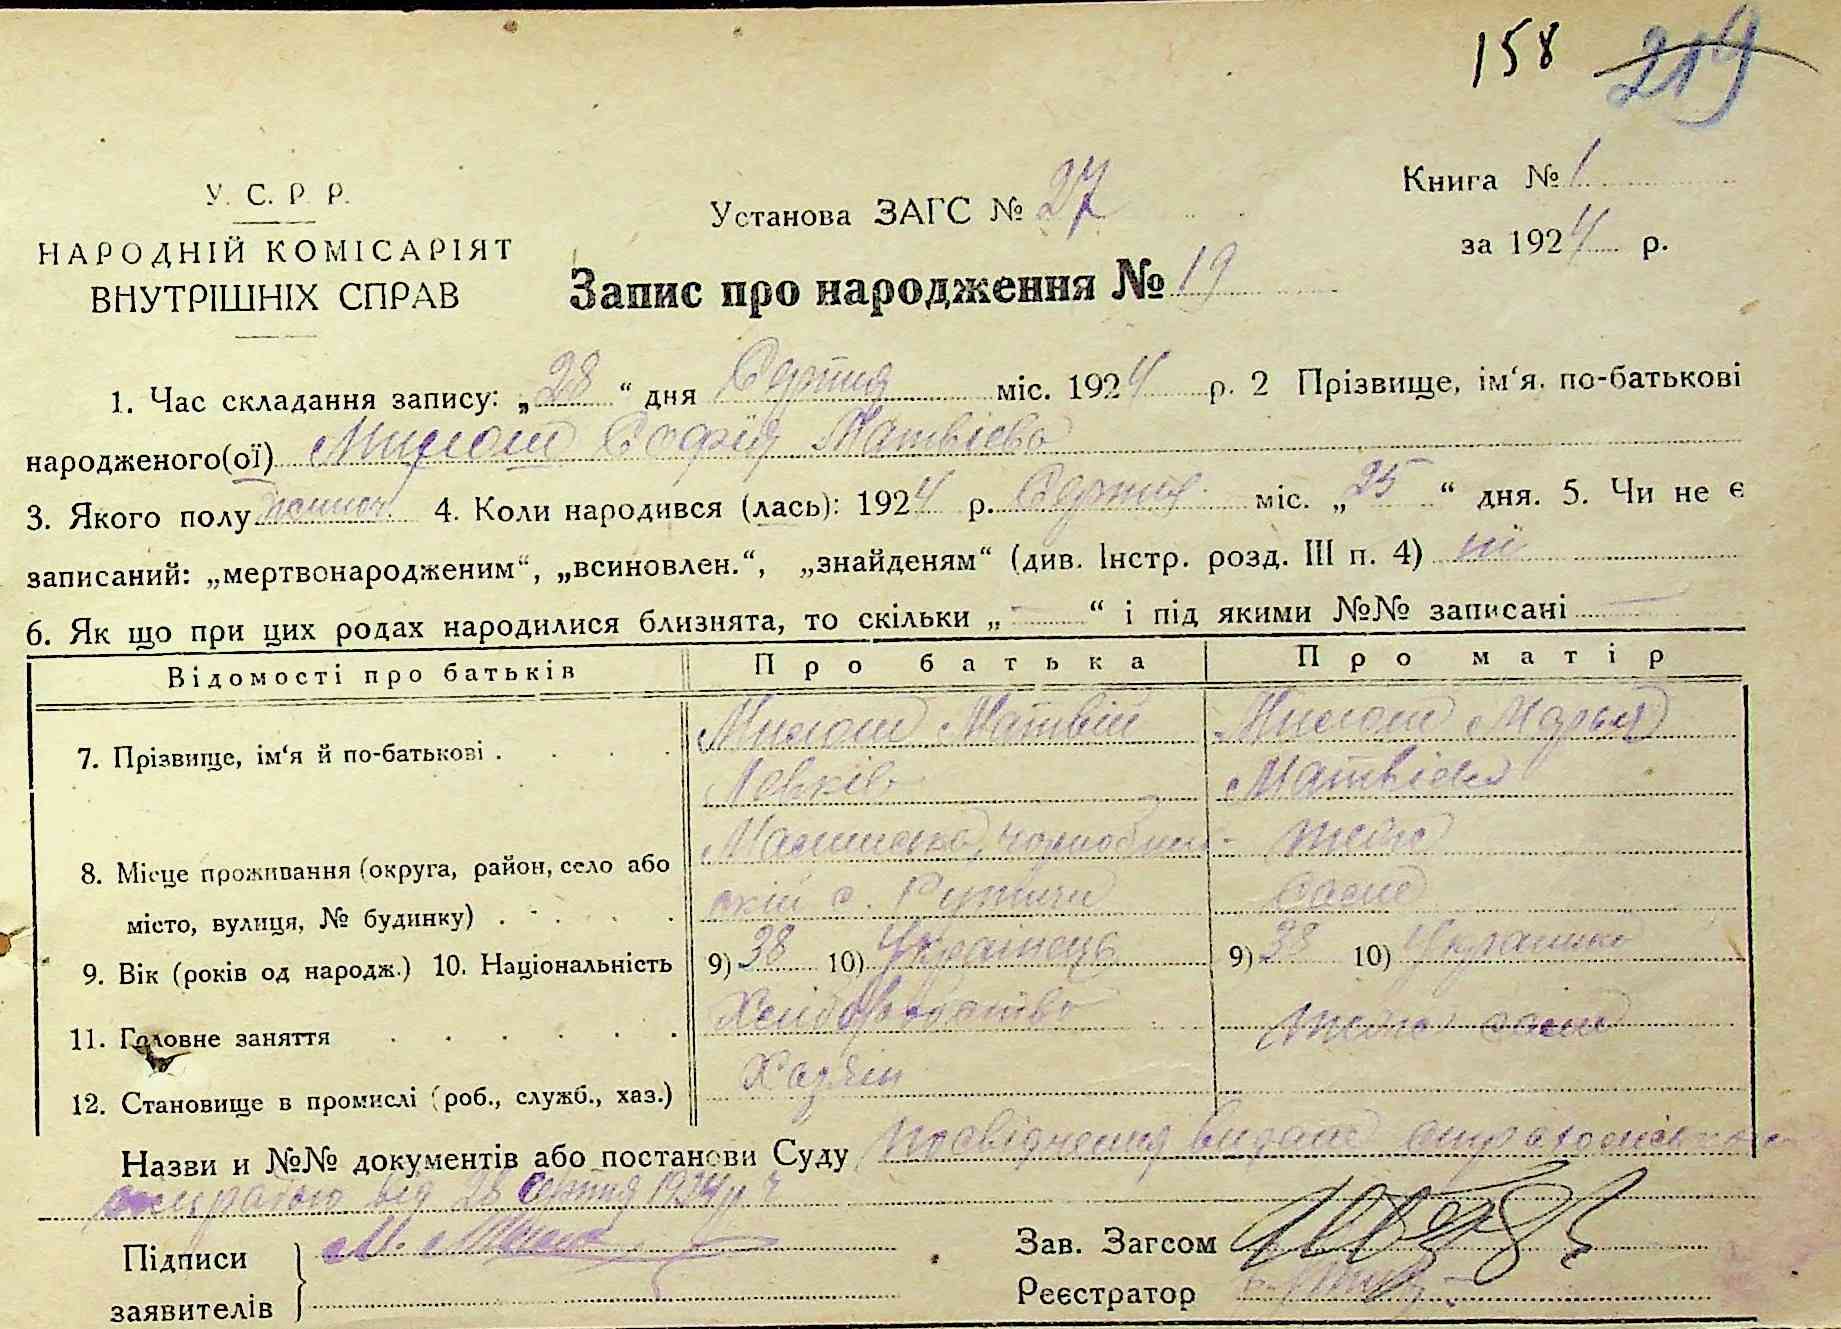 158 219
У. С. Р. Р.
НАРОДНІЙ КОМІСАРІЯТ
ВНУТРІШНІХ СПРАВ
Установа ЗАГС № 27
Книга № 1
за 1924 р.
Запис про народження № 19
1. Час складання запису: „28“ дня Серпня міс. 1924 р. 2 Прізвище, ім‘я. по-батькові
народженого(ої) Софія Матвієва
3. Якого полу 4. Коли народився (лась): 1924 р. Серпня міс. „25“ дня. 5. Чи не є
записаний: „мертвонародженим“, „всиновлен.“, „знайденям“ (див. Інстр. розд. III п. 4) ні
6. Як що при цих родах народилися близнята, то скільки „-“ і під якими №№ записані -
Відомості про батьків Про батька Про матір
7. Прізвище, ім‘я й по-батькові . . . . Матвій Марья
Левків Матвієва
8. Місце проживання (округа, район, село або
місто, вулиця, № будинку) . . . . скій с.
9. Вік (років од народж.) 10. Національність 9) 38 10) Українець 9) 38 10) Украинка
11. Головне заняття . . . . . Хліборобство
12. Становище в промислі (роб., служб., хаз.) Хазяін
Назви и №№ документів або постанови Суду посвідчення видане
від 28 серпня 1924 р.
Підписи М.
заявителів
Зав. Загсом
Реєстратор